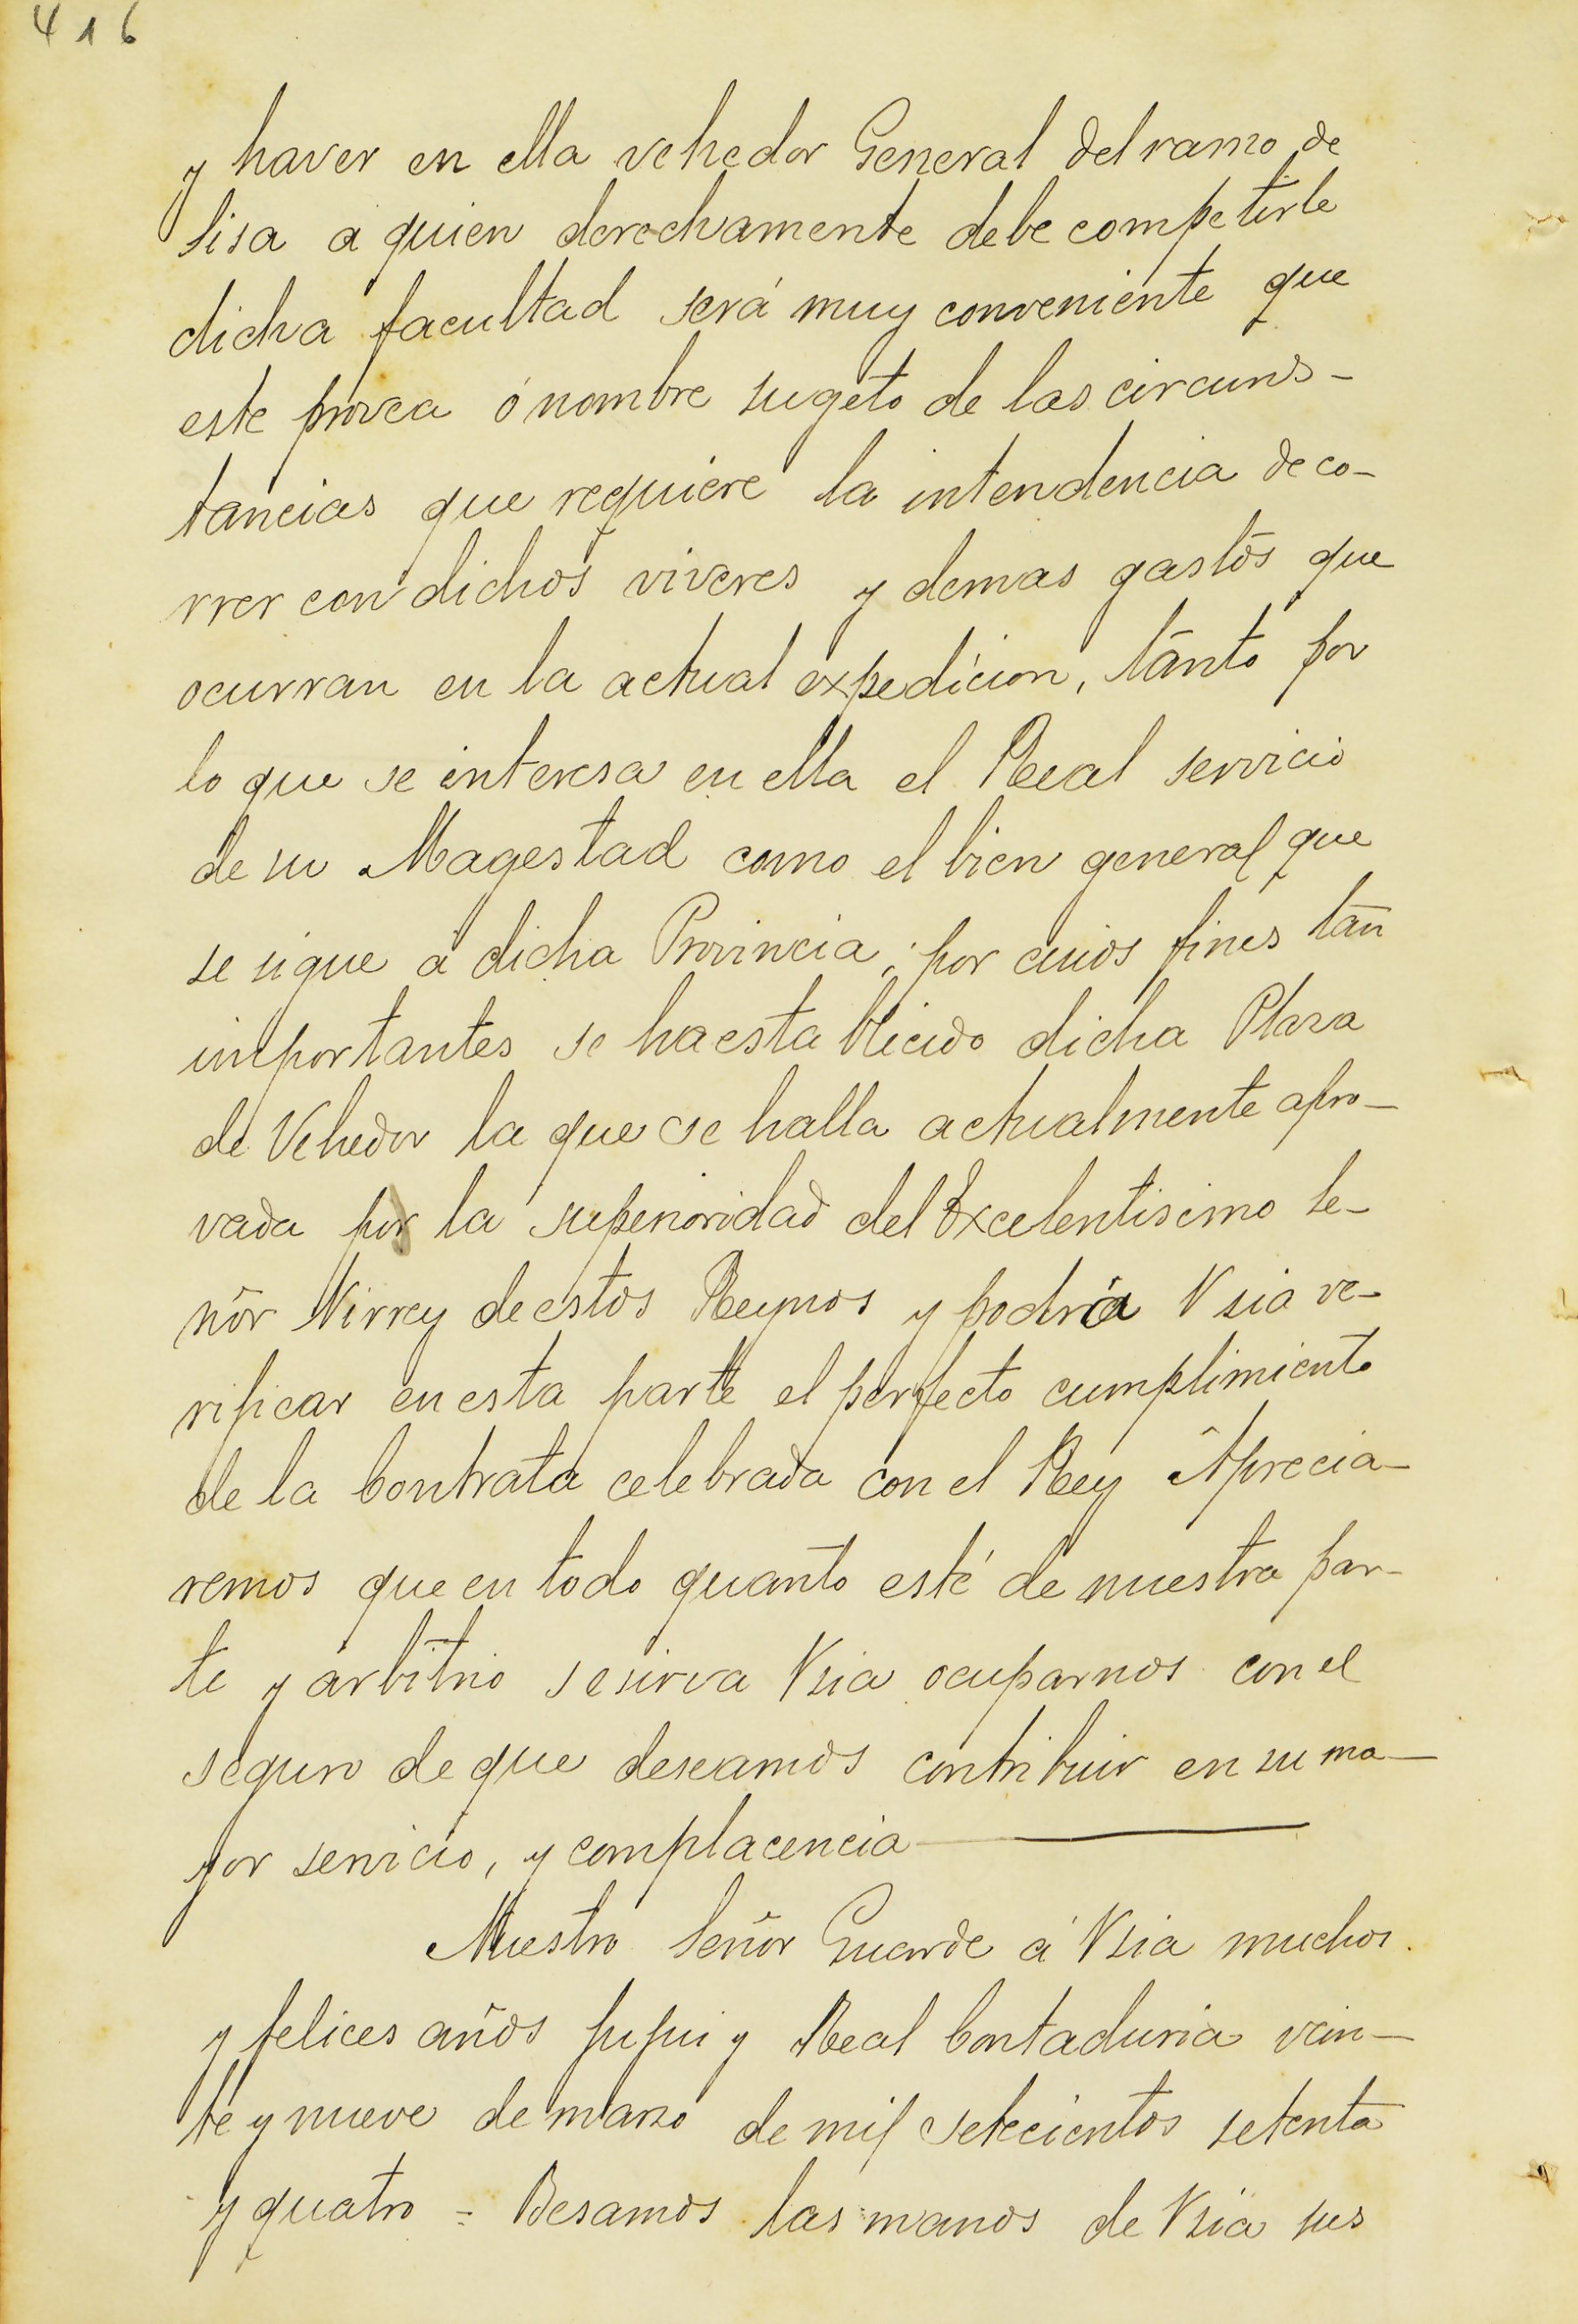 416
y haver en ella vehedor General del ramo de
sisa a quien derechamente debe competirle
dicha facultad será muy conveniente que
este provea ó nombre sugeto de las circuns-
tancias que requiere la intendencia de co-
rrer con dichos viveres y demas gastos que
ocurran en la actual expedicion, tanto por
lo que se interesa en ella el Real servicio
de su Magestad como el bien general que
se sigue á dicha Provincia; por cuios fines tan
importantes se ha establicido dicha Plaza
de Vehedor la que se halla actualmente apro-
vada por la superioridad del Excelentisimo Se-
ñor Virrey de estos Reynos y podrá Vsia ve-
rificar en esta parte el perfecto cumplimiento
de la Contrata celebrada con el Rey Aprecia-
remos que en todo quanto esté de nuestra par-
te y arbitrio se sirva Vsia ocuparnos con el
seguro de que deseamos contribuir en su ma-
yor servicio, y complacencia
Nuestro Señor Guarde á Vsia muchos
y felices años Jujui y Real Contaduria vein-
te y nueve de marzo de mil setecientos setenta
y quatro = Besamos las manos de Vsia sus